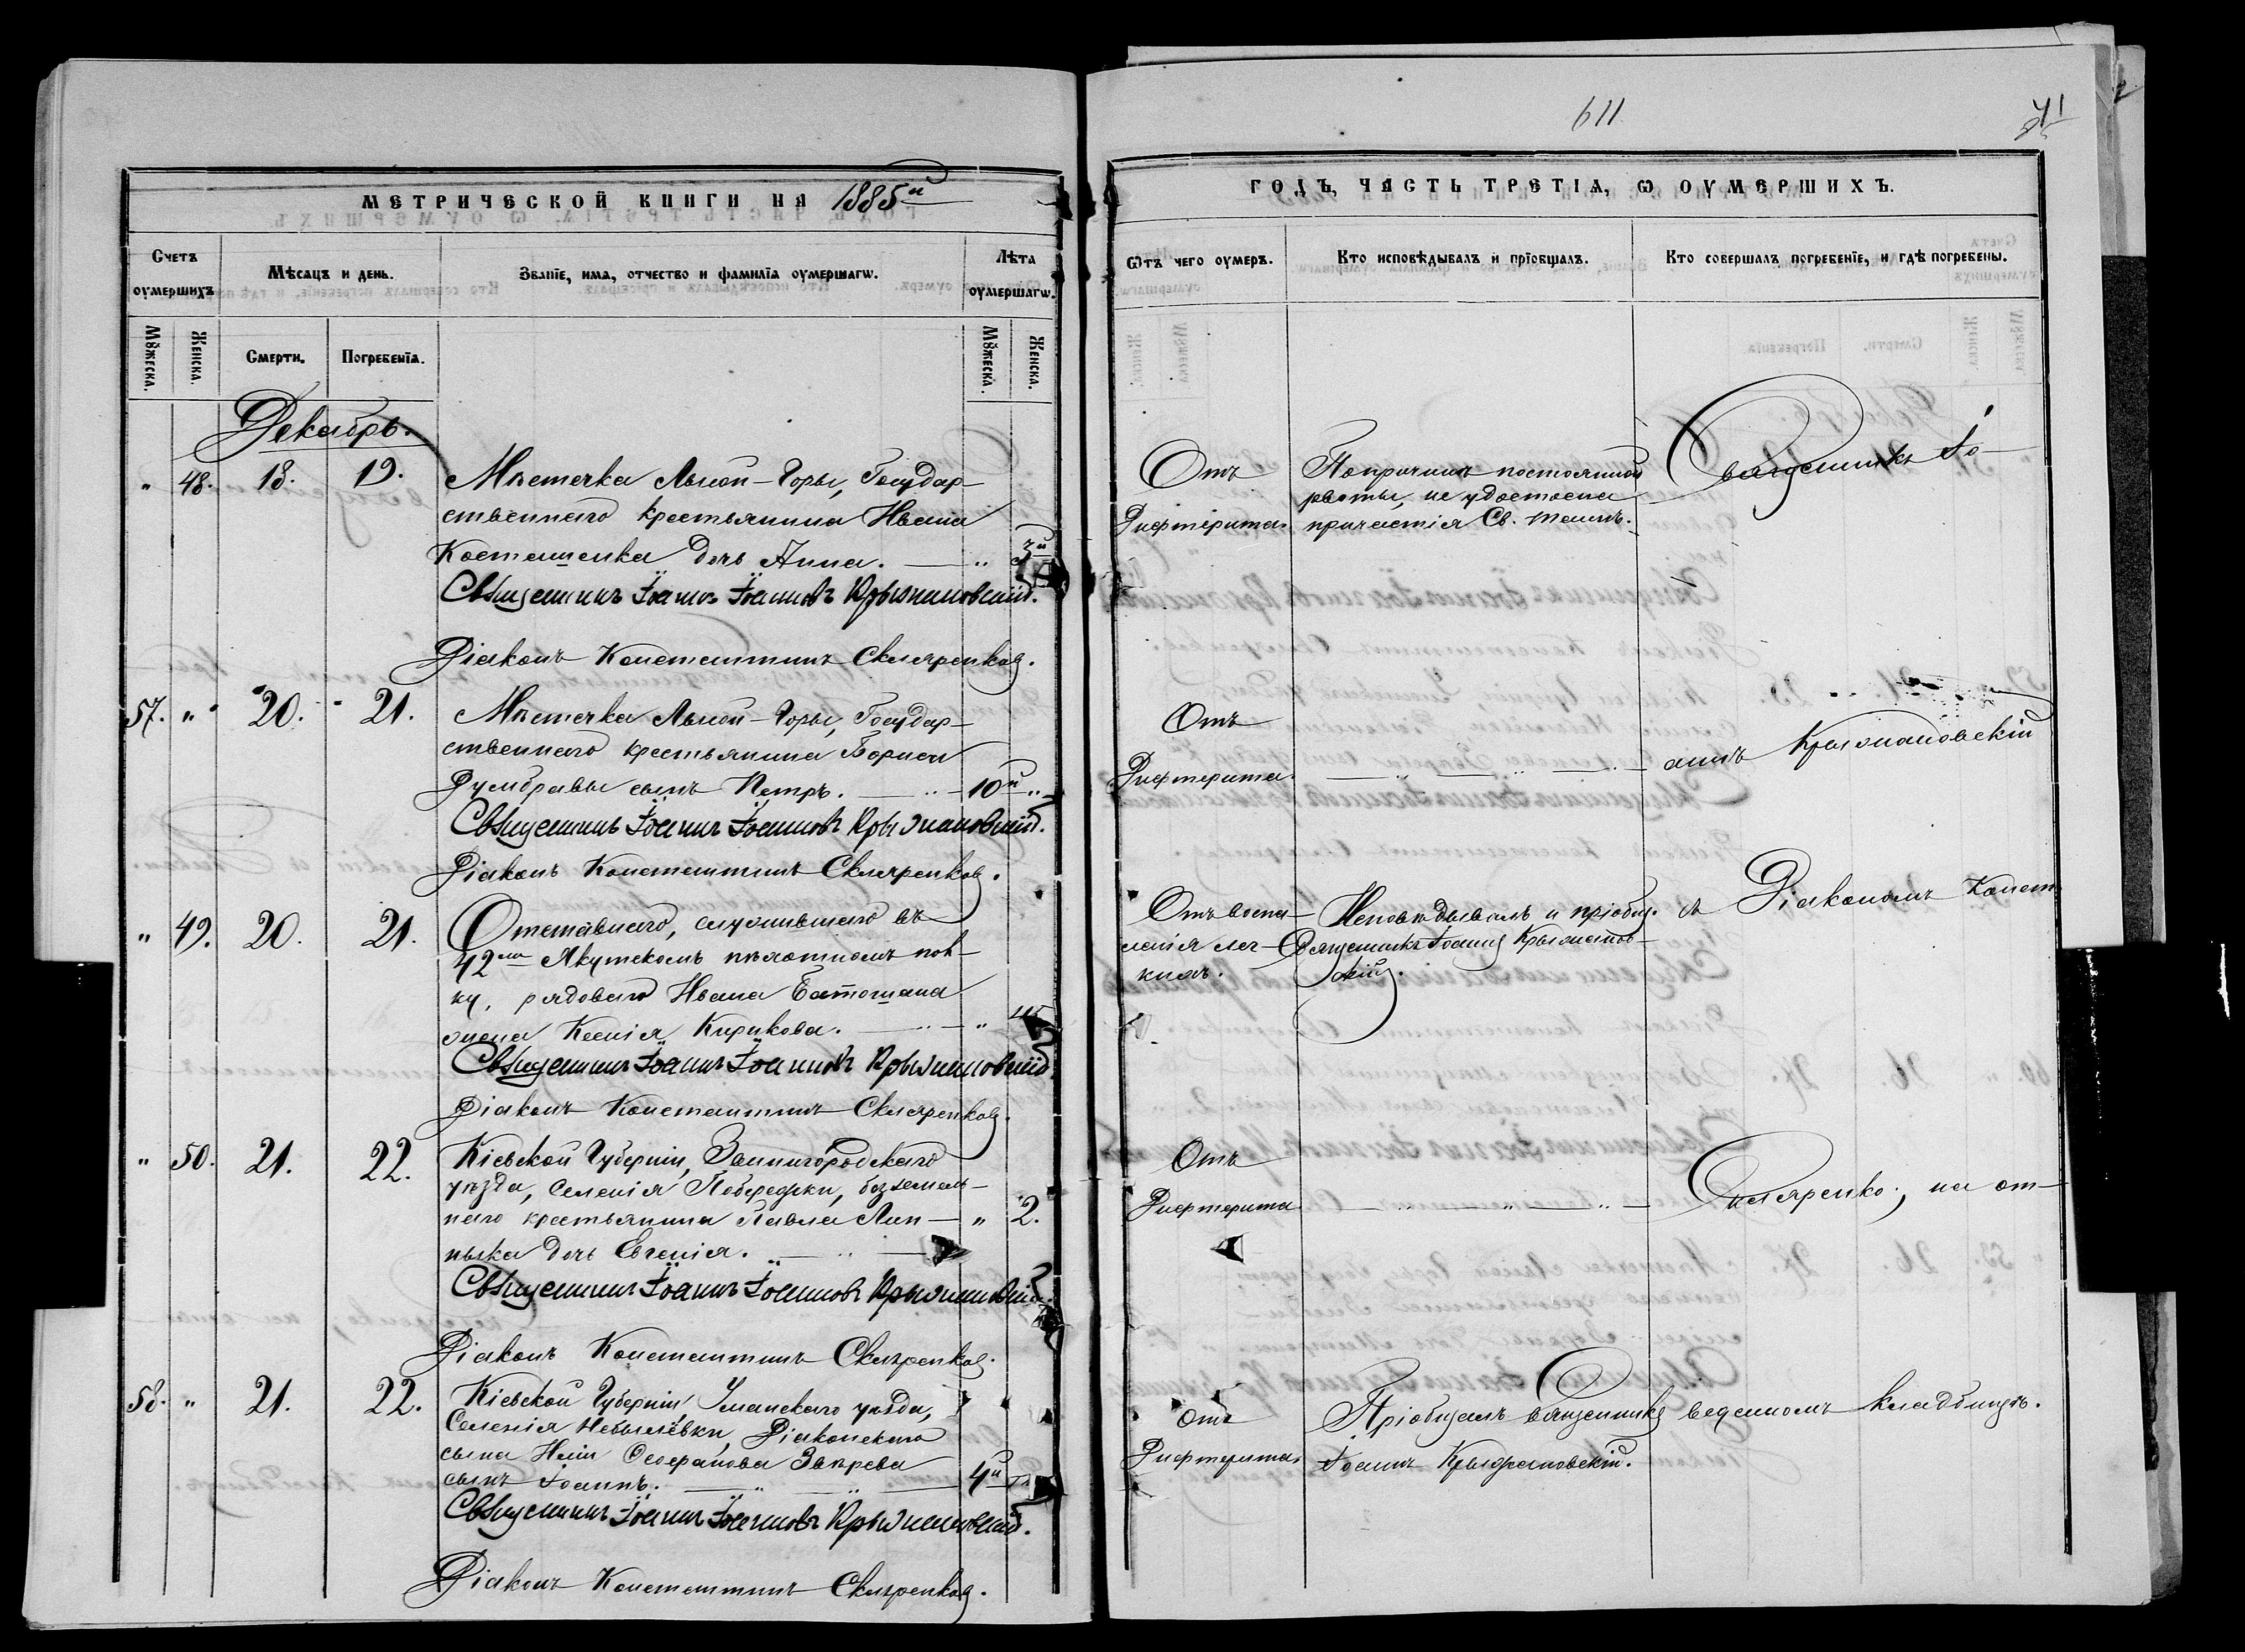 611
41
МЕТРИЧЕСКОЙ КНИГИ НА 1885й
ГОДЪ, ЧАСТЬ ТРЕТІѦ, Ѡ ОУМЕРШИХЪ.
Счетъ оумершихъ
Мѣсѧцъ и день.
Званіе, има, отчество и фамиліа оумершагѡ.
Лѣта оумершагѡ.
Мꙋжеска.
Женска.
Смерти.
Погребеніѧ.
Мꙋжеска.
Женска.
Ѿтъ чего оумеръ.
Кто исповѣдывалъ и пріобщалъ.
Кто совершалъ погребеніе, и гдѣ погребены.
Декабрь.
" 48. 18. 19. Мѣстечка Лысой-Горы, Государ-
ственнаго крестьянина Ивана
Косташенка дочь Анна. " 3й
Священникъ Іоаннъ Іоанновъ Крыжановскій.
Діаконъ Константинъ Скляренковъ.
Отъ
Дифтерита.
По причинѣ постоянной
рвоты, не удостоена
причастія Св. таинъ.
Священникъ Іо-
57. " 20. 21. Мѣстечка Лысой-Горы, Государ-
ственнаго крестьянина Бориса
Думбравы сынъ Петръ. 10й "
Священникъ Іоаннъ Іоанновъ Крыжановскій.
Діаконъ Константинъ Скляренковъ.
Отъ
Дифтерита.
аннъ Крыжановскій
" 49. 20. 21. Отставнаго, служившаго въ
42мъ Якутскомъ пѣхотномъ пол-
ку, рядоваго Ивана
жена Ксенія Кирикова. " 45
Священникъ Іоаннъ Іоанновъ Крыжановскій.
Діаконъ Константинъ Скляренковъ.
Отъ воспа-
ленія лег-
кихъ.
Исповѣдывалъ и пріобщ.
Священникъ Іоаннъ Крыжанов-
скій.
съ Діакономъ Конст.
" 50. 21. 22. Кіевской Губерніи, Звенигородскаго
уѣзда, селенія Побережки, безземель-
наго крестьянина Павла Лип- " 2.
ныка дочь Евгенія.
Священникъ Іоаннъ Іоанновъ Крыжановскій.
Діаконъ Константинъ Скляренковъ.
Отъ
Дифтерита
Скляренко, на от-
58. " 21. 22. Кіевской Губерніи Уманскаго уѣзда,
Селенія Небылевки, Діаконскаго
сына Иліи Ѳеофанова Звѣрева
сынъ Іоаннъ. 4й
Священникъ Іоаннъ Іоанновъ Крыжановскій.
Діаконъ Константинъ Скляренковъ.
Отъ
Дифтерита.
Пріобщалъ Священникъ
Іоаннъ Крыжановскій.
веденномъ кладбищѣ.